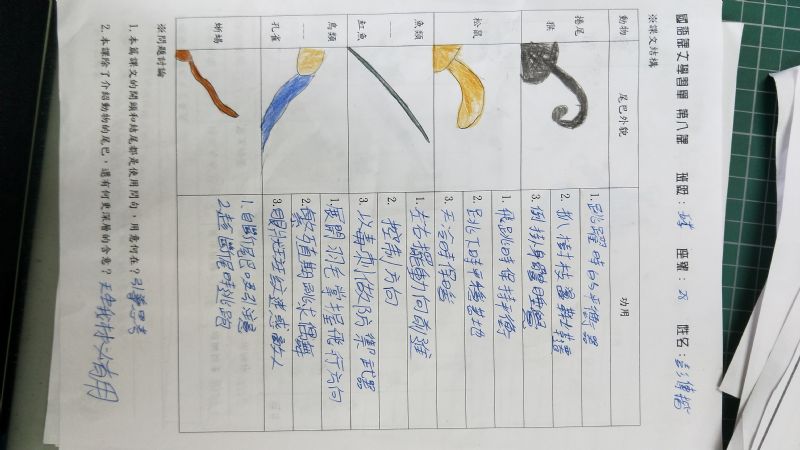 國語課文學習單 第八課 班級： 座號： 姓名：彭
※課文結構
動物 尾巴外貌 功用
捲尾猴
1. 跳躍時的平衡器
2.
3. 倒掛身體睡覺
松鼠
1. 飛跳時保持平衡
2. 跳下時平穩著地
3. 天冷時保暖
魚類
1. 左右擺動向前游
2. 控制方向
魟魚
3. 以毒刺做防禦武器
鳥類
1. 展開羽毛掌握飛行方向
2. 繁殖期跳求偶舞
孔雀
3. 眼狀斑紋迷惑敵人
蜥蜴
1. 自斷尾巴吸引
2. 趁斷尾時逃跑
※問題討論
1. 本篇課文的開頭和結尾都是使用問句，用意何在？引發思考
2. 本課除了介紹動物的尾巴，還有何更深層的含意？天生我材必有用